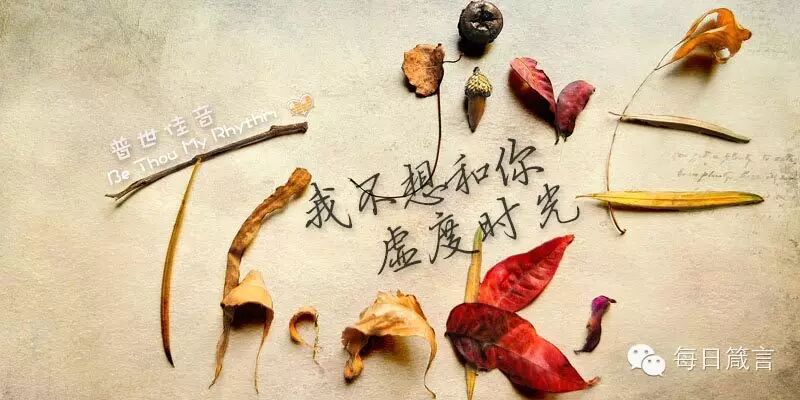 普世佳音
Be Thou My Rhythm
GIVE
Thanks
我不想和你
虚度时光
每日箴言